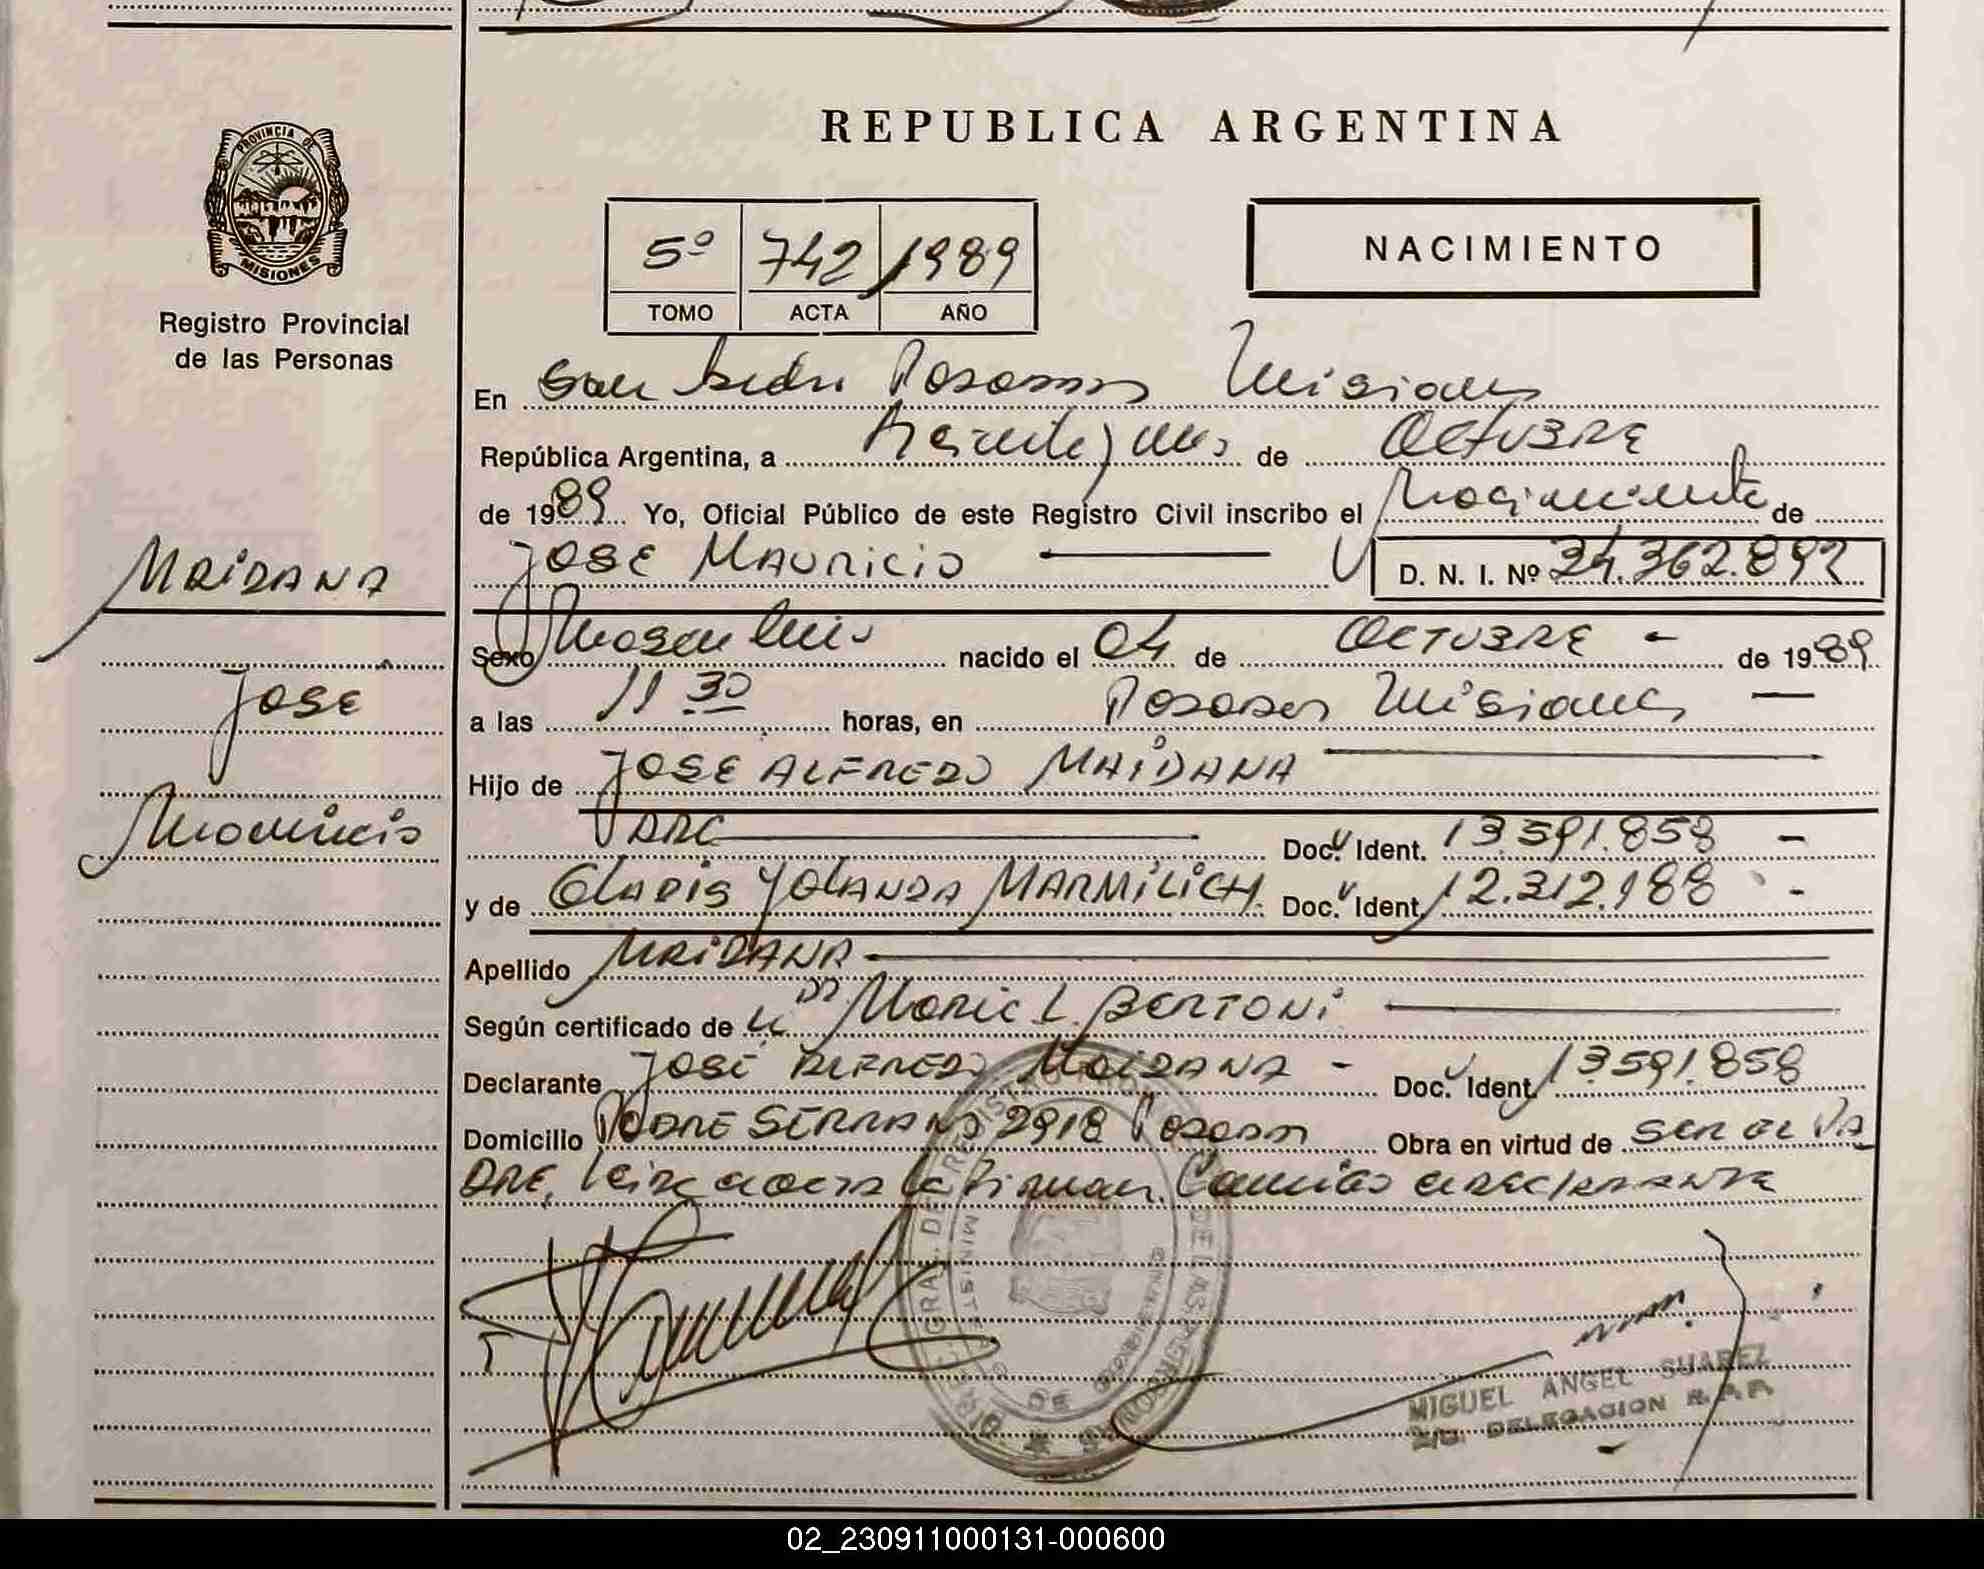 PROVINCIA DE
MISIONES
Registro Provincial
de las Personas
MAIDANA
JOSE
Mauricio
REPUBLICA ARGENTINA
5º 742 1989
TOMO ACTA AÑO
NACIMIENTO
En San Isidro Posadas Misiones
República Argentina, a Veinte y uno de OCTUBRE
de 1989 Yo, Oficial Público de este Registro Civil inscribo el Nacimiento de
JOSE MAURICIO D. N. I. Nº 34.362.892
Sexo Masculino nacido el 04 de OCTUBRE - de 1989
a las 11 30 horas, en Posadas Misiones —
Hijo de JOSE ALFREDO MAIDANA
ARG Doc. Ident. 13.591.858 -
y de GLADIS YOLANDA MARMILICH. Doc. Ident. 12.312.188 -
Apellido MAIDANA
Según certificado de la Dra Marie L. BERTONI
Declarante JOSÉ ALFREDO MAIDANA - Doc. Ident. 13.591.858
Domicilio PADRE SERRANO 2918 Posadas Obra en virtud de SER EL PA
DRE, leida acta la firman Conmigo el declarante
MIGUEL ANGEL SUAREZ
DELEGACION R.P.P.
02_230911000131-000600